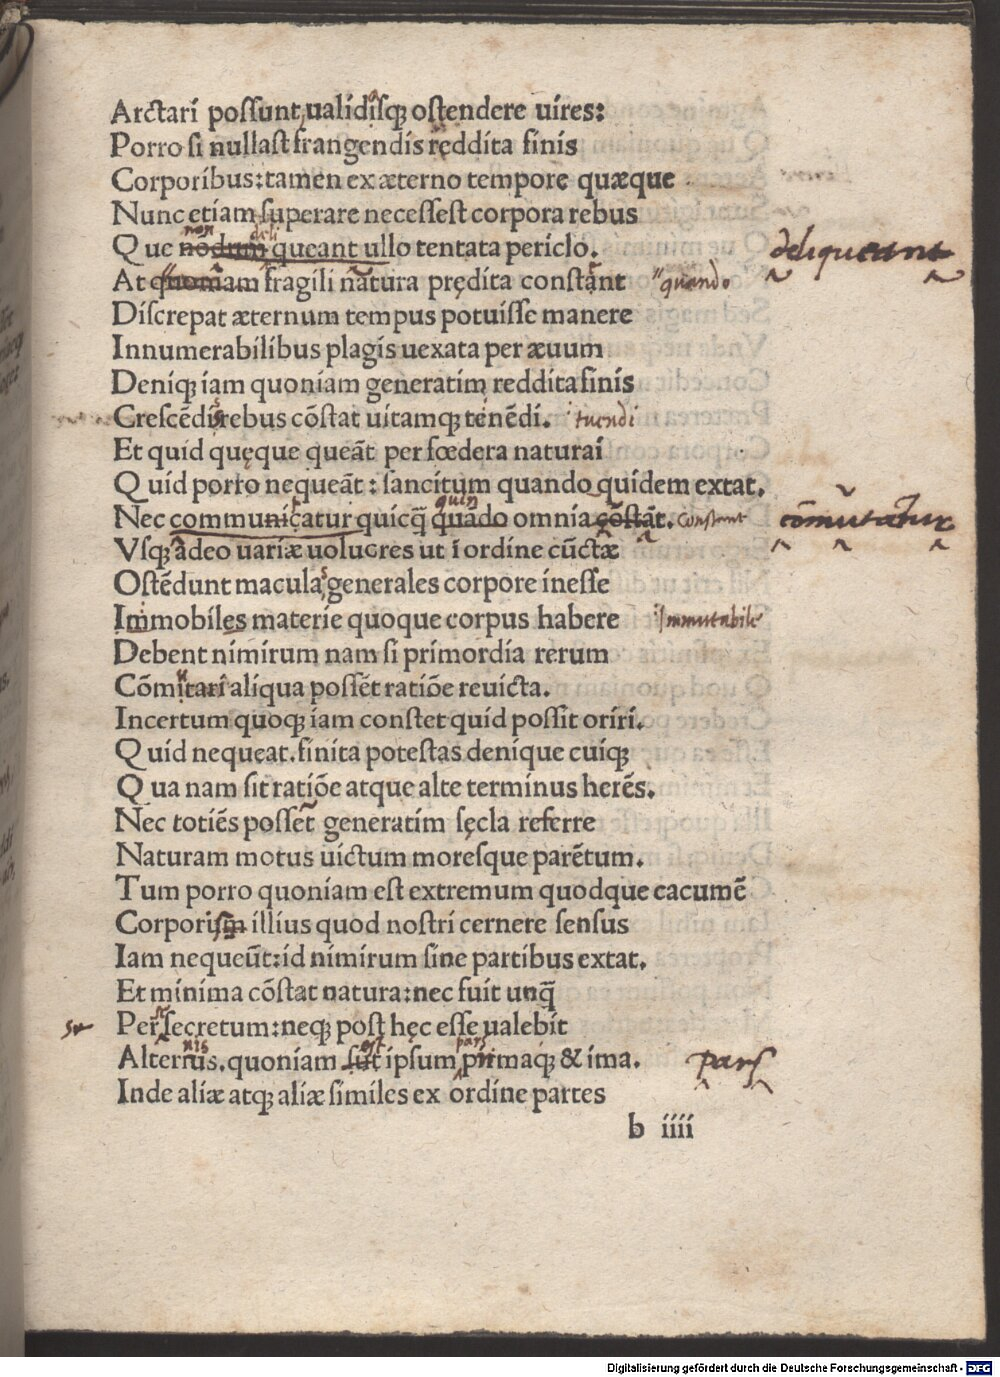 Arctari possunt ualidisq; ostendere uires:
Porro si nullast frangendis reddita finis
Corporibus: tamen ex æterno tempore quæque
Nunc etiam superare necessest corpora rebus
non deli
Que nōdum queant ullo tentata periclo. deliqueant
At quoniam fragili natura prędita constant quando
Discrepat æternum tempus potuisse manere
Innumerabilibus plagis uexata per æuum
Deniq; iam quoniam generatim reddita finis
Crescēdis rebus cōstat uitamq; tenēdi. tuendi
Et quid quęque queāt per fœdera naturai
Quid porro nequeāt: sancitum quando quidem extat.
quin
Nec communicatur quicq̄ quādo omnia cōstāt. constant cōmutatur
Vsq; adeo uariæ uolucres ut ī ordine cūctæ
Ostēdunt maculas generales corpore inesse
Immobiles materie quoque corpus habere Immutabile
Debent nimirum nam si primordia rerum
Cōmitari aliqua possēt ratiōe reuicta.
Incertum quoq; iam constet quid possit oriri.
Quid nequeat. finita potestas denique cuiq;
Qua nam sit ratiōe atque alte terminus herēs.
Nec totiēs possēt generatim sęcla referre
Naturam motus uictum moresque parētum.
Tum porro quoniam est extremum quodque cacumē
Corporis illius quod nostri cernere sensus
Iam nequeūt: id nimirum sine partibus extat.
Et minima cōstat natura: nec fuit unq̄
Per secretum: neq; post hęc esse ualebit
est pars
Alterius. quoniam sūt ipsum primaq; & ima. pars
Inde aliæ atq; aliæ similes ex ordine partes
b iiii
Digitalisierung gefördert durch die Deutsche Forschungsgemeinschaft - DFG